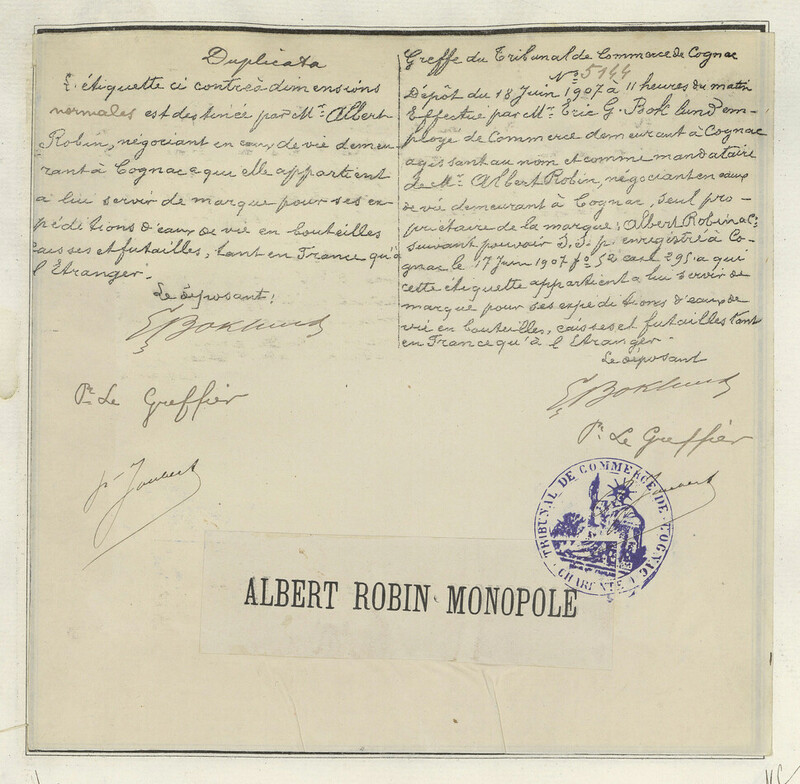 Duplicata
L'étiquette ci contre à dimensions
normales est destinée par Mr. Albert
Robin, négociant en eaux de vie demeu
rant à Cognac a que elle appartient
a lui servir de marque pour ses ex
péditions d'eaux de vie en bouteilles
caisses et futailles, tant en France qu'à
l'Etranger.
Le déposant:
E. Boklund
Pr. Le Greffier
J. Joubert
Greffe du Tribunal de Commerce de Cognac
No. 5144
Dépôt du 18 Juin 1907 à 11 heures du matin
Effectué par Mr. Eric G. Boklund em-
ployé de Commerce demeurant à Cognac
agissant au nom et comme mandataire
de Mr. Albert Robin, négociant en eaux
de vie demeurant à Cognac, seul pro-
priétaire de la marque: Albert Robin & Co.
suivant pouvoir S.S.p. enregistré à Co-
gnac le 17 Juin 1907 fo 52 case 295 a qui
cette étiquette appartient a lui servir de
marque pour ses expeditions d'eaux de
vie en bouteilles, caisses et futailles tant
en France qu'à l'Etranger.
Le déposant
E. Boklund
Pr. Le Greffier
Joubert
TRIBUNAL DE COMMERCE DE COGNAC
CHARENTE
ALBERT ROBIN MONOPOLE